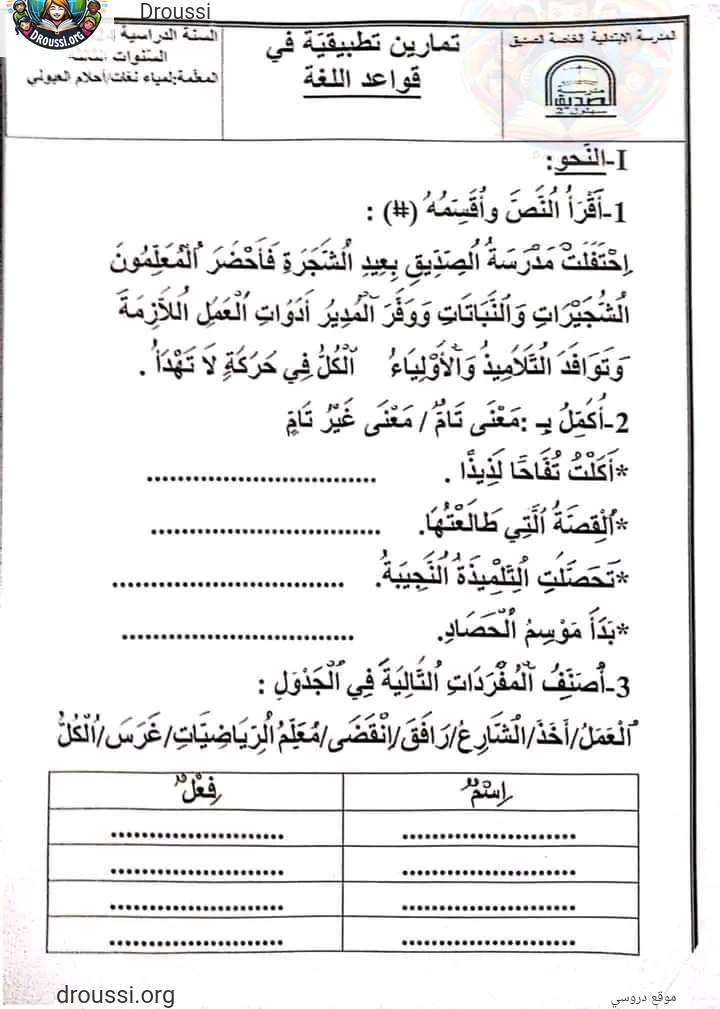 Droussi
DROUSSI.org
المدرسة الابتدائية الخاصة الصديق
مدرسة
الصديق
تمارين تطبيقيّة في
قواعد اللغة
السنة الدراسية
السنوات الثالثة
المعلمة:لمياء نغات/أحلام العيوني
I-النَحو:
1-أَقْرَأُ النَصَّ وأُقَسِّمُهُ (#) :
اِحْتَفَلَتْ مَدْرَسَةُ الصِّدِّيقِ بِعِيدِ الشَّجَرَةِ فَأَحْضَرَ الْمُعَلِّمُونَ
الشُّجَيْرَاتِ وَالنَّبَاتَاتِ وَوَفَّرَ الْمُدِيرُ أَدَوَاتِ الْعَمَلِ اللاَّزِمَةَ
وَتَوَافَدَ التَّلاَمِيذُ وَالْأَوْلِيَاءُ الْكُلُّ فِي حَرَكَةٍ لَا تَهْدَأُ .
2-أُكَمِّلُ بِـ :مَعْنَى تَامٌّ / مَعْنَى غَيْرُ تَامٍّ
*أَكَلْتُ تُفَّاحًا لَذِيذًا . ..............................
*اَلْقِصَّةُ الَّتِي طَالَعْتُهَا. ..............................
*تَحَصَّلَتِ التِّلْمِيذَةُ النَّجِيبَةُ. ..............................
*بَدَأَ مَوْسِمُ الْحَصَادِ. ..............................
3-أُصَنِّفُ الْمُفْرَدَاتِ التَّالِيَةَ فِي الْجَدْوَلِ :
اَلْعَمَلُ/أَخَذَ/الشَّارِعُ/رَافَقَ/اِنْقَضَى/مُعَلِّمُ الرِّيَاضِيَّاتِ/غَرَسَ/اَلْكُلُّ
اِسْمٌ فِعْلٌ
....................... .......................
....................... .......................
....................... .......................
....................... .......................
موقع دروسي
droussi.org